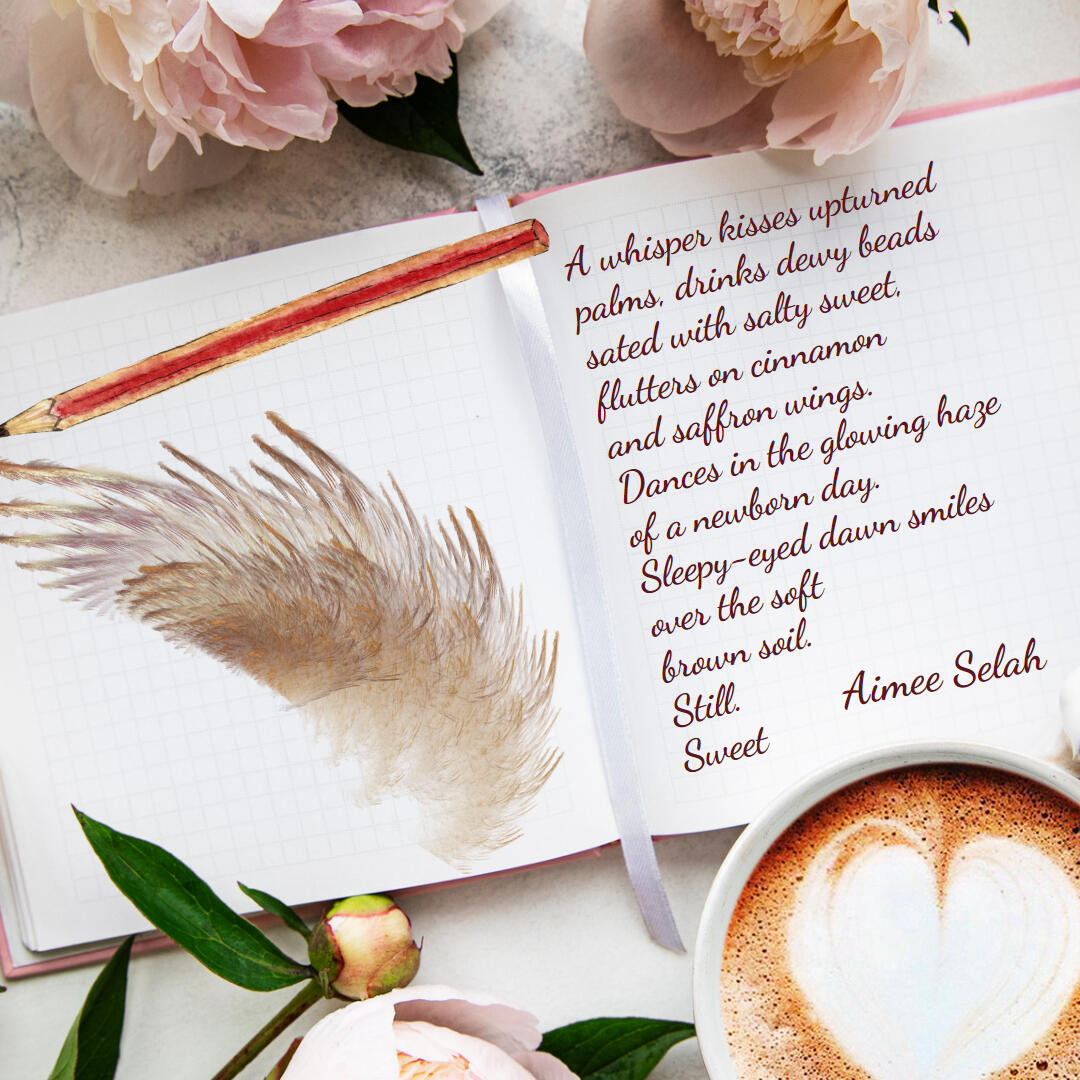 A whisper kisses upturned
palms, drinks dewy beads
sated with salty sweet,
flutters on cinnamon
and saffron wings.
Dances in the glowing haze
of a newborn day.
Sleepy-eyed dawn smiles
over the soft
brown soil.
Still.
Sweet
Aimee Selah